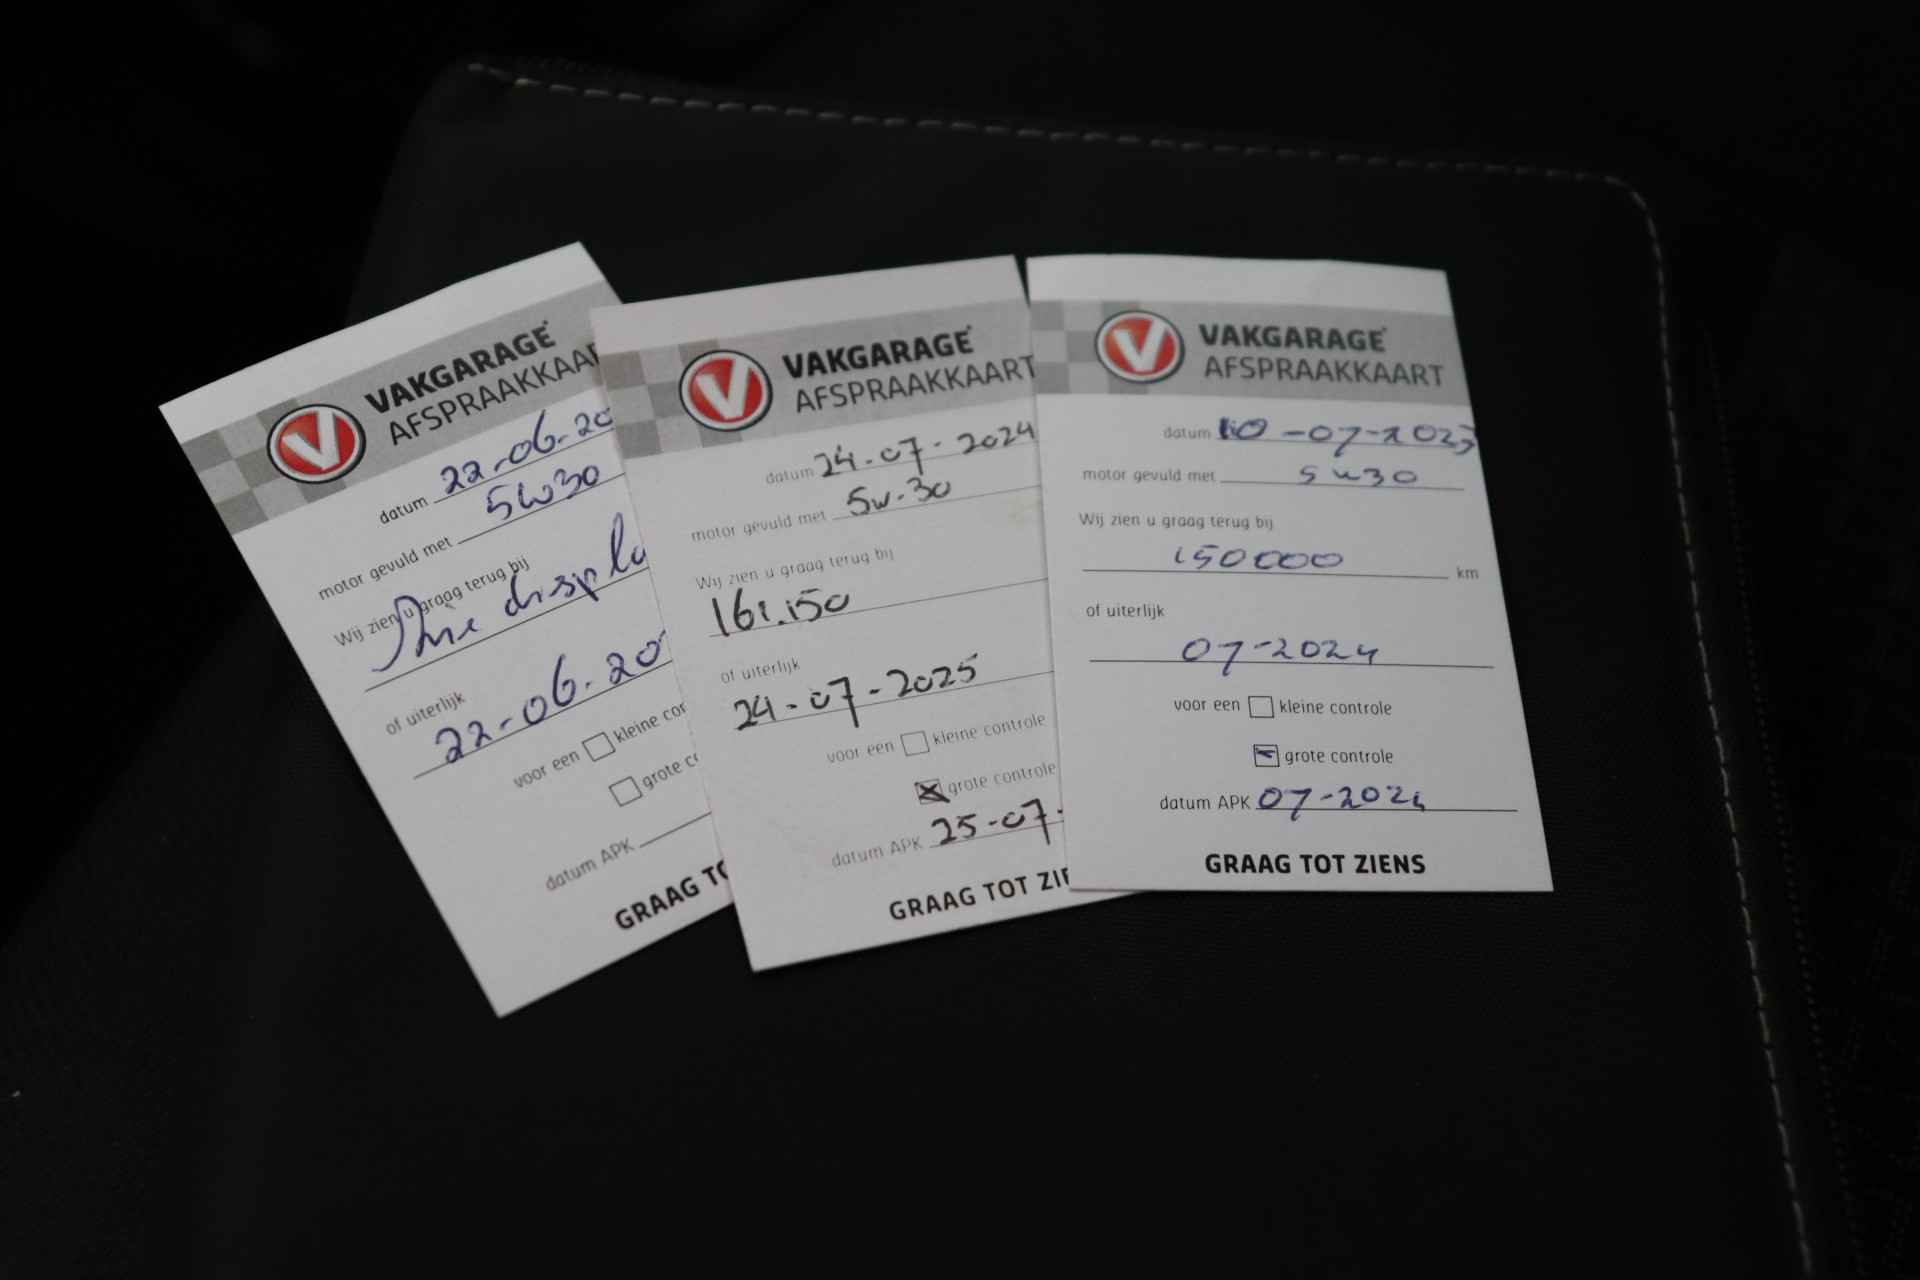 VAKGARAGE
AFSPRAAKKAAR
datum 22-06-20
motor gevuld met 5W30
Wij zien u graag terug bij
displa
of uiterlijk
22-06-20
voor een kleine con
grote co
datum APK
GRAAG TO
VAKGARAGE
AFSPRAAKKAART
datum 24-07-2024
motor gevuld met 5w-30
Wij zien u graag terug bij
161.150
of uiterlijk
24-07-2025
voor een kleine controle
grote controle
datum APK 25-07-
GRAAG TOT ZIE
VAKGARAGE
AFSPRAAKKAART
datum 10-07-2023
motor gevuld met 5w30
Wij zien u graag terug bij
150000 km
of uiterlijk
07-2024
voor een kleine controle
grote controle
datum APK 07-2024
GRAAG TOT ZIENS